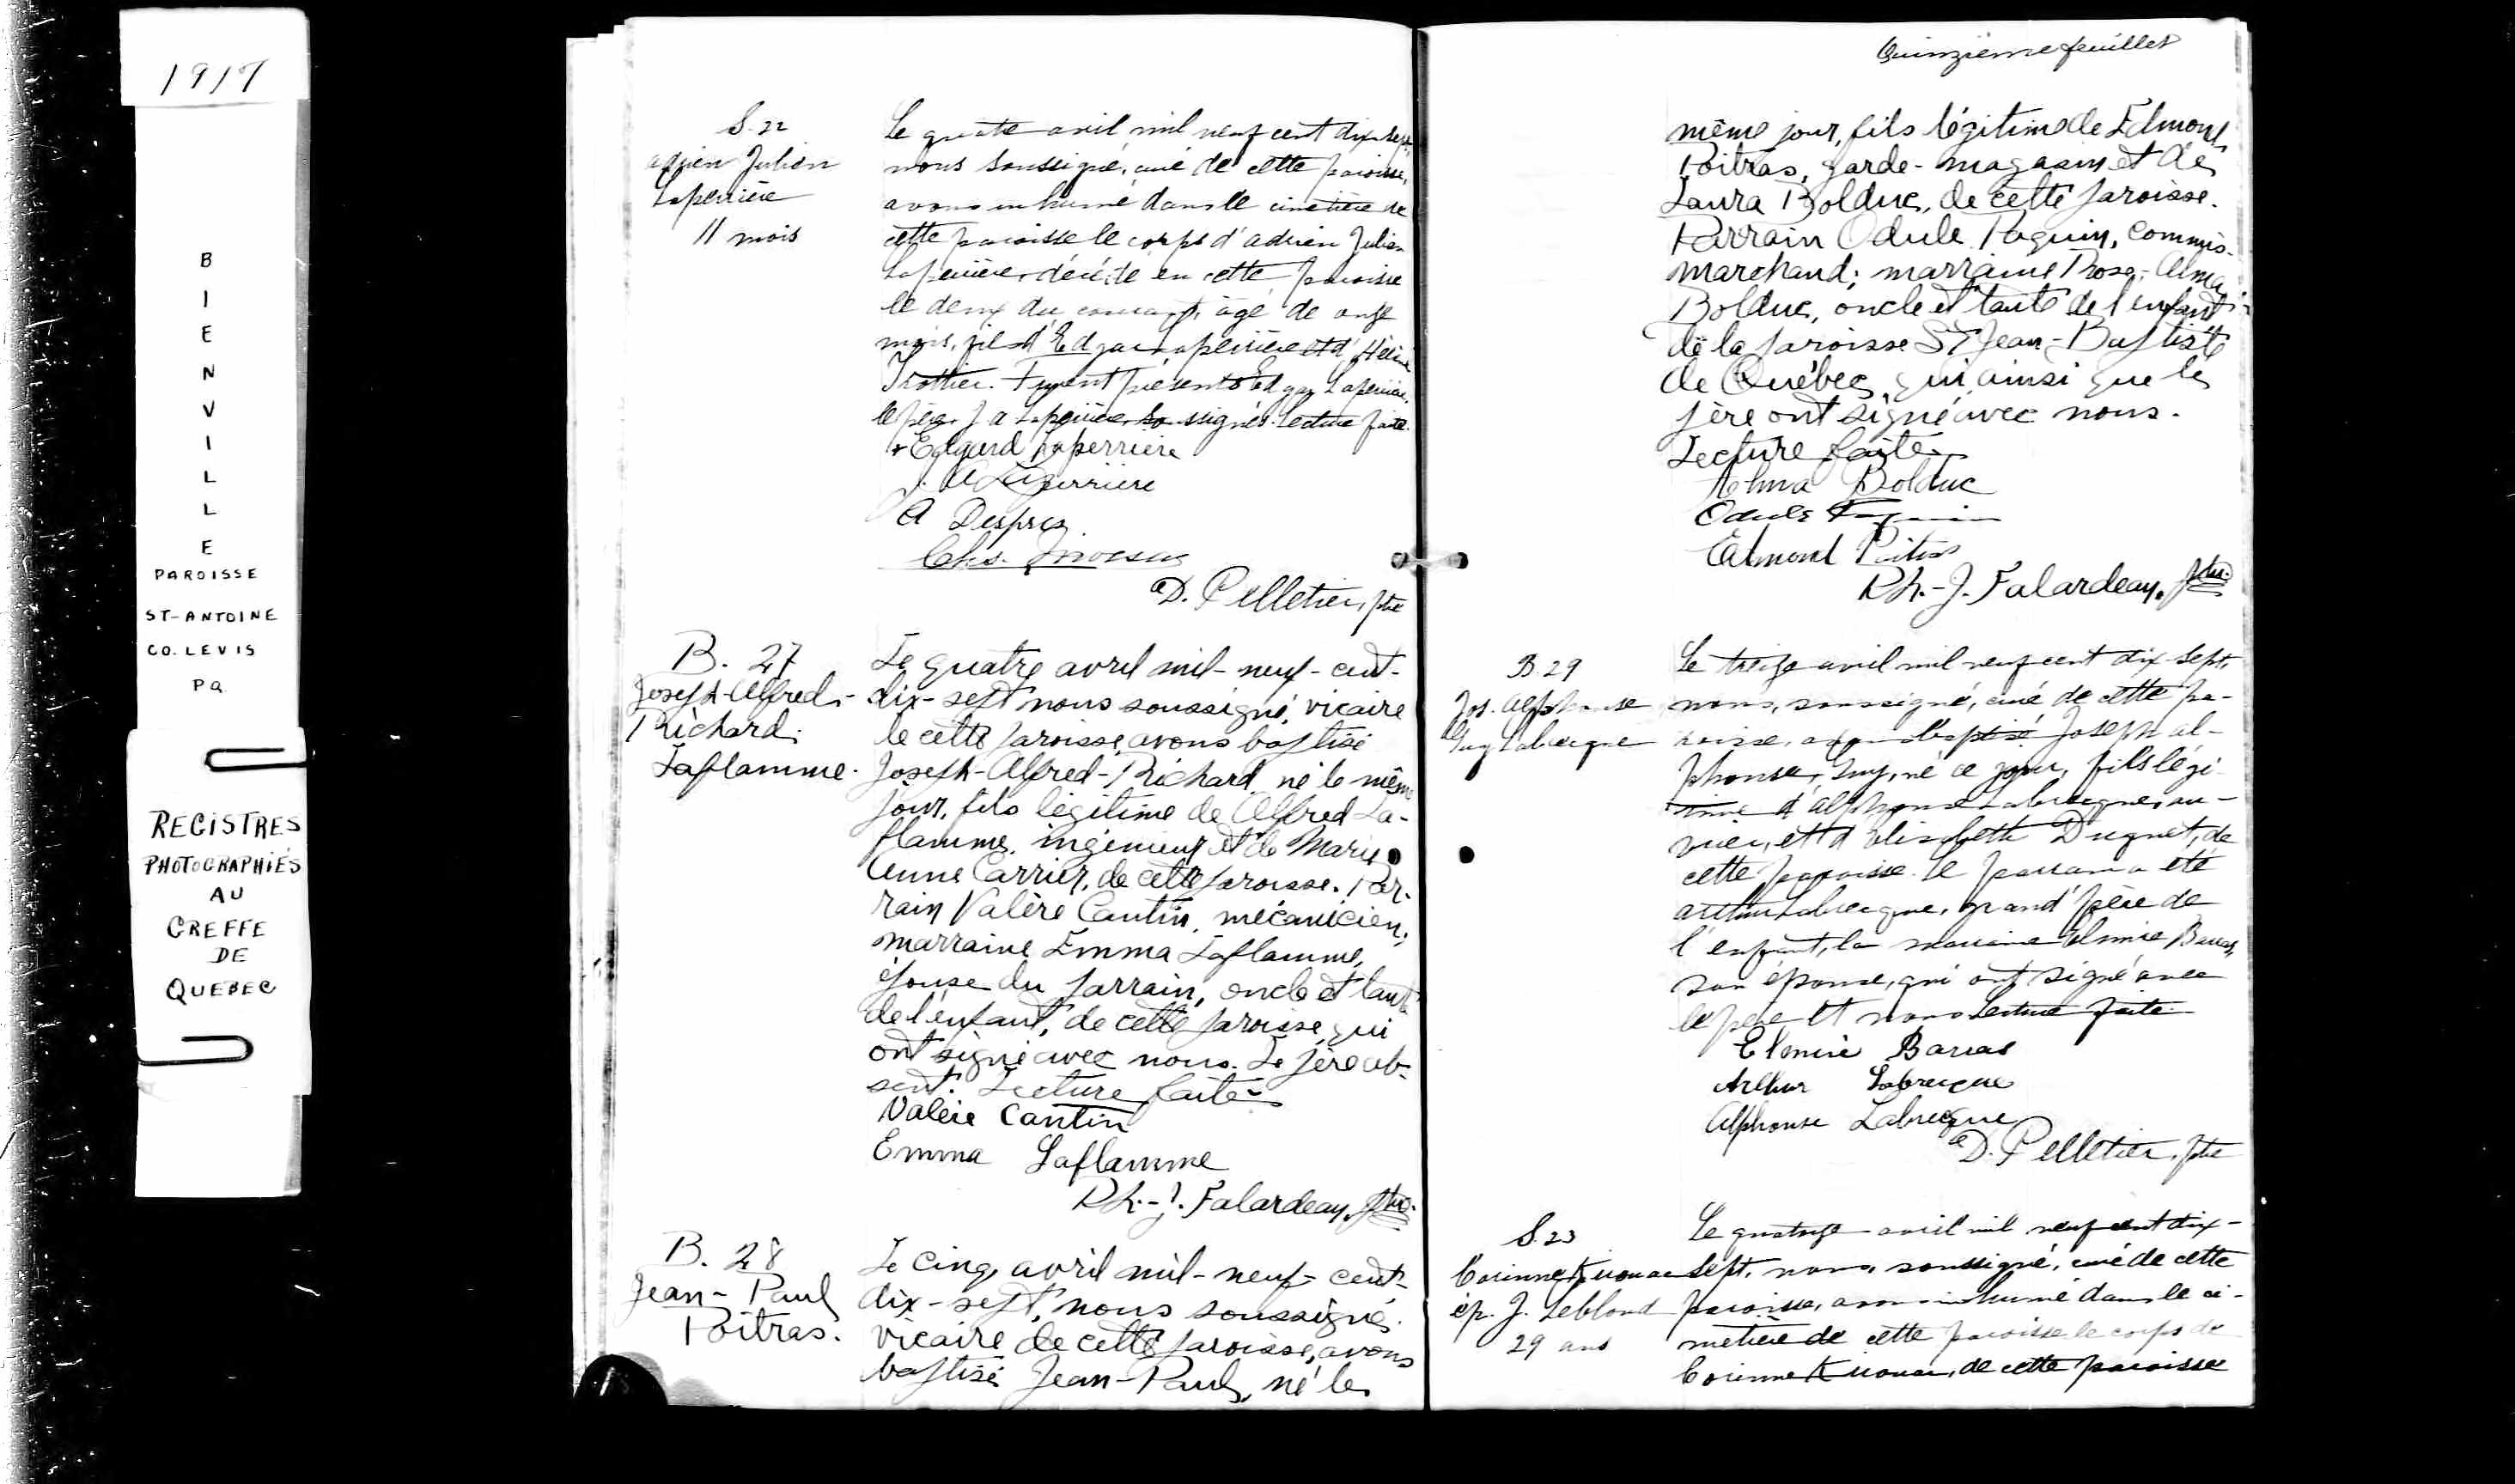 1917
BIENVILLE
PAROISSE
ST-ANTOINE
CO. LEVIS
PQ
REGISTRES
PHOTOGRAPHIÉS
AU
GREFFE
DE
QUEBEC
S. 22
Adrien Julien
Laperrière
11 mois
Le quatre avril mil neuf cent dix-sept,
nous soussigné, curé de cette paroisse,
avons inhumé dans le cimetière de
cette paroisse le corps d'Adrien Julien
Laperrière, décédé en cette paroisse
le deux du courant, âgé de onze
mois, fils d'Edgar Laperrière et d'Hélène
Trottier. Furent présents Edgar Laperrière,
le père, J A Laperrière soussignés. Lecture faite.
+ Edgard Laperrière
J. A Laperrière
A Despres
Chs.
D. Pelletier, ptre
B. 27
Joseph-Alfred-
Richard
Laflamme.
Le quatre avril mil-neuf-cent-
dix-sept nous soussigné, vicaire
de cette paroisse, avons baptisé
Joseph-Alfred-Richard, né le même
jour, fils légitime de Alfred La-
flamme, ingénieur et de Marie
Anne Carrier, de cette paroisse. Par-
rain Valère Cantin, mécanicien;
marraine Emma Laflamme,
épouse du parrain, oncle et tante
de l'enfant, de cette paroisse, qui
ont signé avec nous. Le père ab-
sent. Lecture faite.
Valère Cantin
Emma Laflamme
Ph.-J. Falardeau, ptre.
B. 28
Jean-Paul
Poitras.
Le cinq avril mil-neuf-cent-
dix-sept, nous soussigné
vicaire de cette paroisse, avons
baptisé Jean-Paul, né le
Quinzième feuillet
même jour, fils légitime de Edmond
Poitras, garde-magasin et de
Laura Bolduc, de cette paroisse.
Parrain Odule Paquin, commis-
marchand; marraine Rose-Alma
Bolduc, oncle et tante de l'enfant
de la paroisse St Jean-Baptiste
de Québec, qui ainsi que le
père ont signé avec nous.
Lecture faite.
Alma Bolduc
Odule Paquin
Edmond Poitras
Ph.-J. Falardeau, ptre.
B 29
Jos. Alphonse
Guy Labrecque
Le treize avril mil neuf cent dix-sept,
nous, soussigné, curé de cette pa-
roisse, avons baptisé Joseph Al-
phonse, Guy, né ce jour, fils légi-
time d'Alphonse Labrecque, ou-
vrier, et d'Elisabeth Duguet, de
cette paroisse. Le parrain a été
Arthur Labrecque, grand'père de
l'enfant, la marraine Elmire Barras,
son épouse, qui ont signé avec
le père et nous. Lecture faite.
Elmire Barras
Arthur Labrecque
Alphonse Labrecque
D. Pelletier, ptre
S. 23
Corinne Kirouac
ép. J. Leblond
29 ans
Le quatorze avril mil neuf cent dix-
sept, nous, soussigné, curé de cette
paroisse, avons inhumé dans le ci-
metière de cette paroisse le corps de
Corinne Kirouac, de cette paroisse